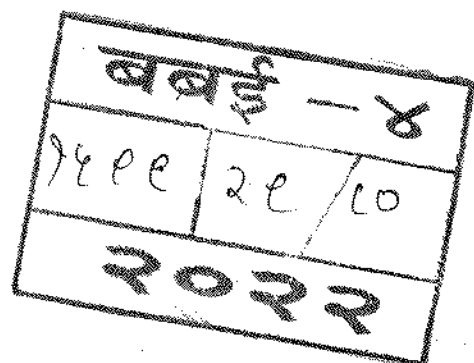 बबई - ४
१५९९ २९ / ८०
२०२२